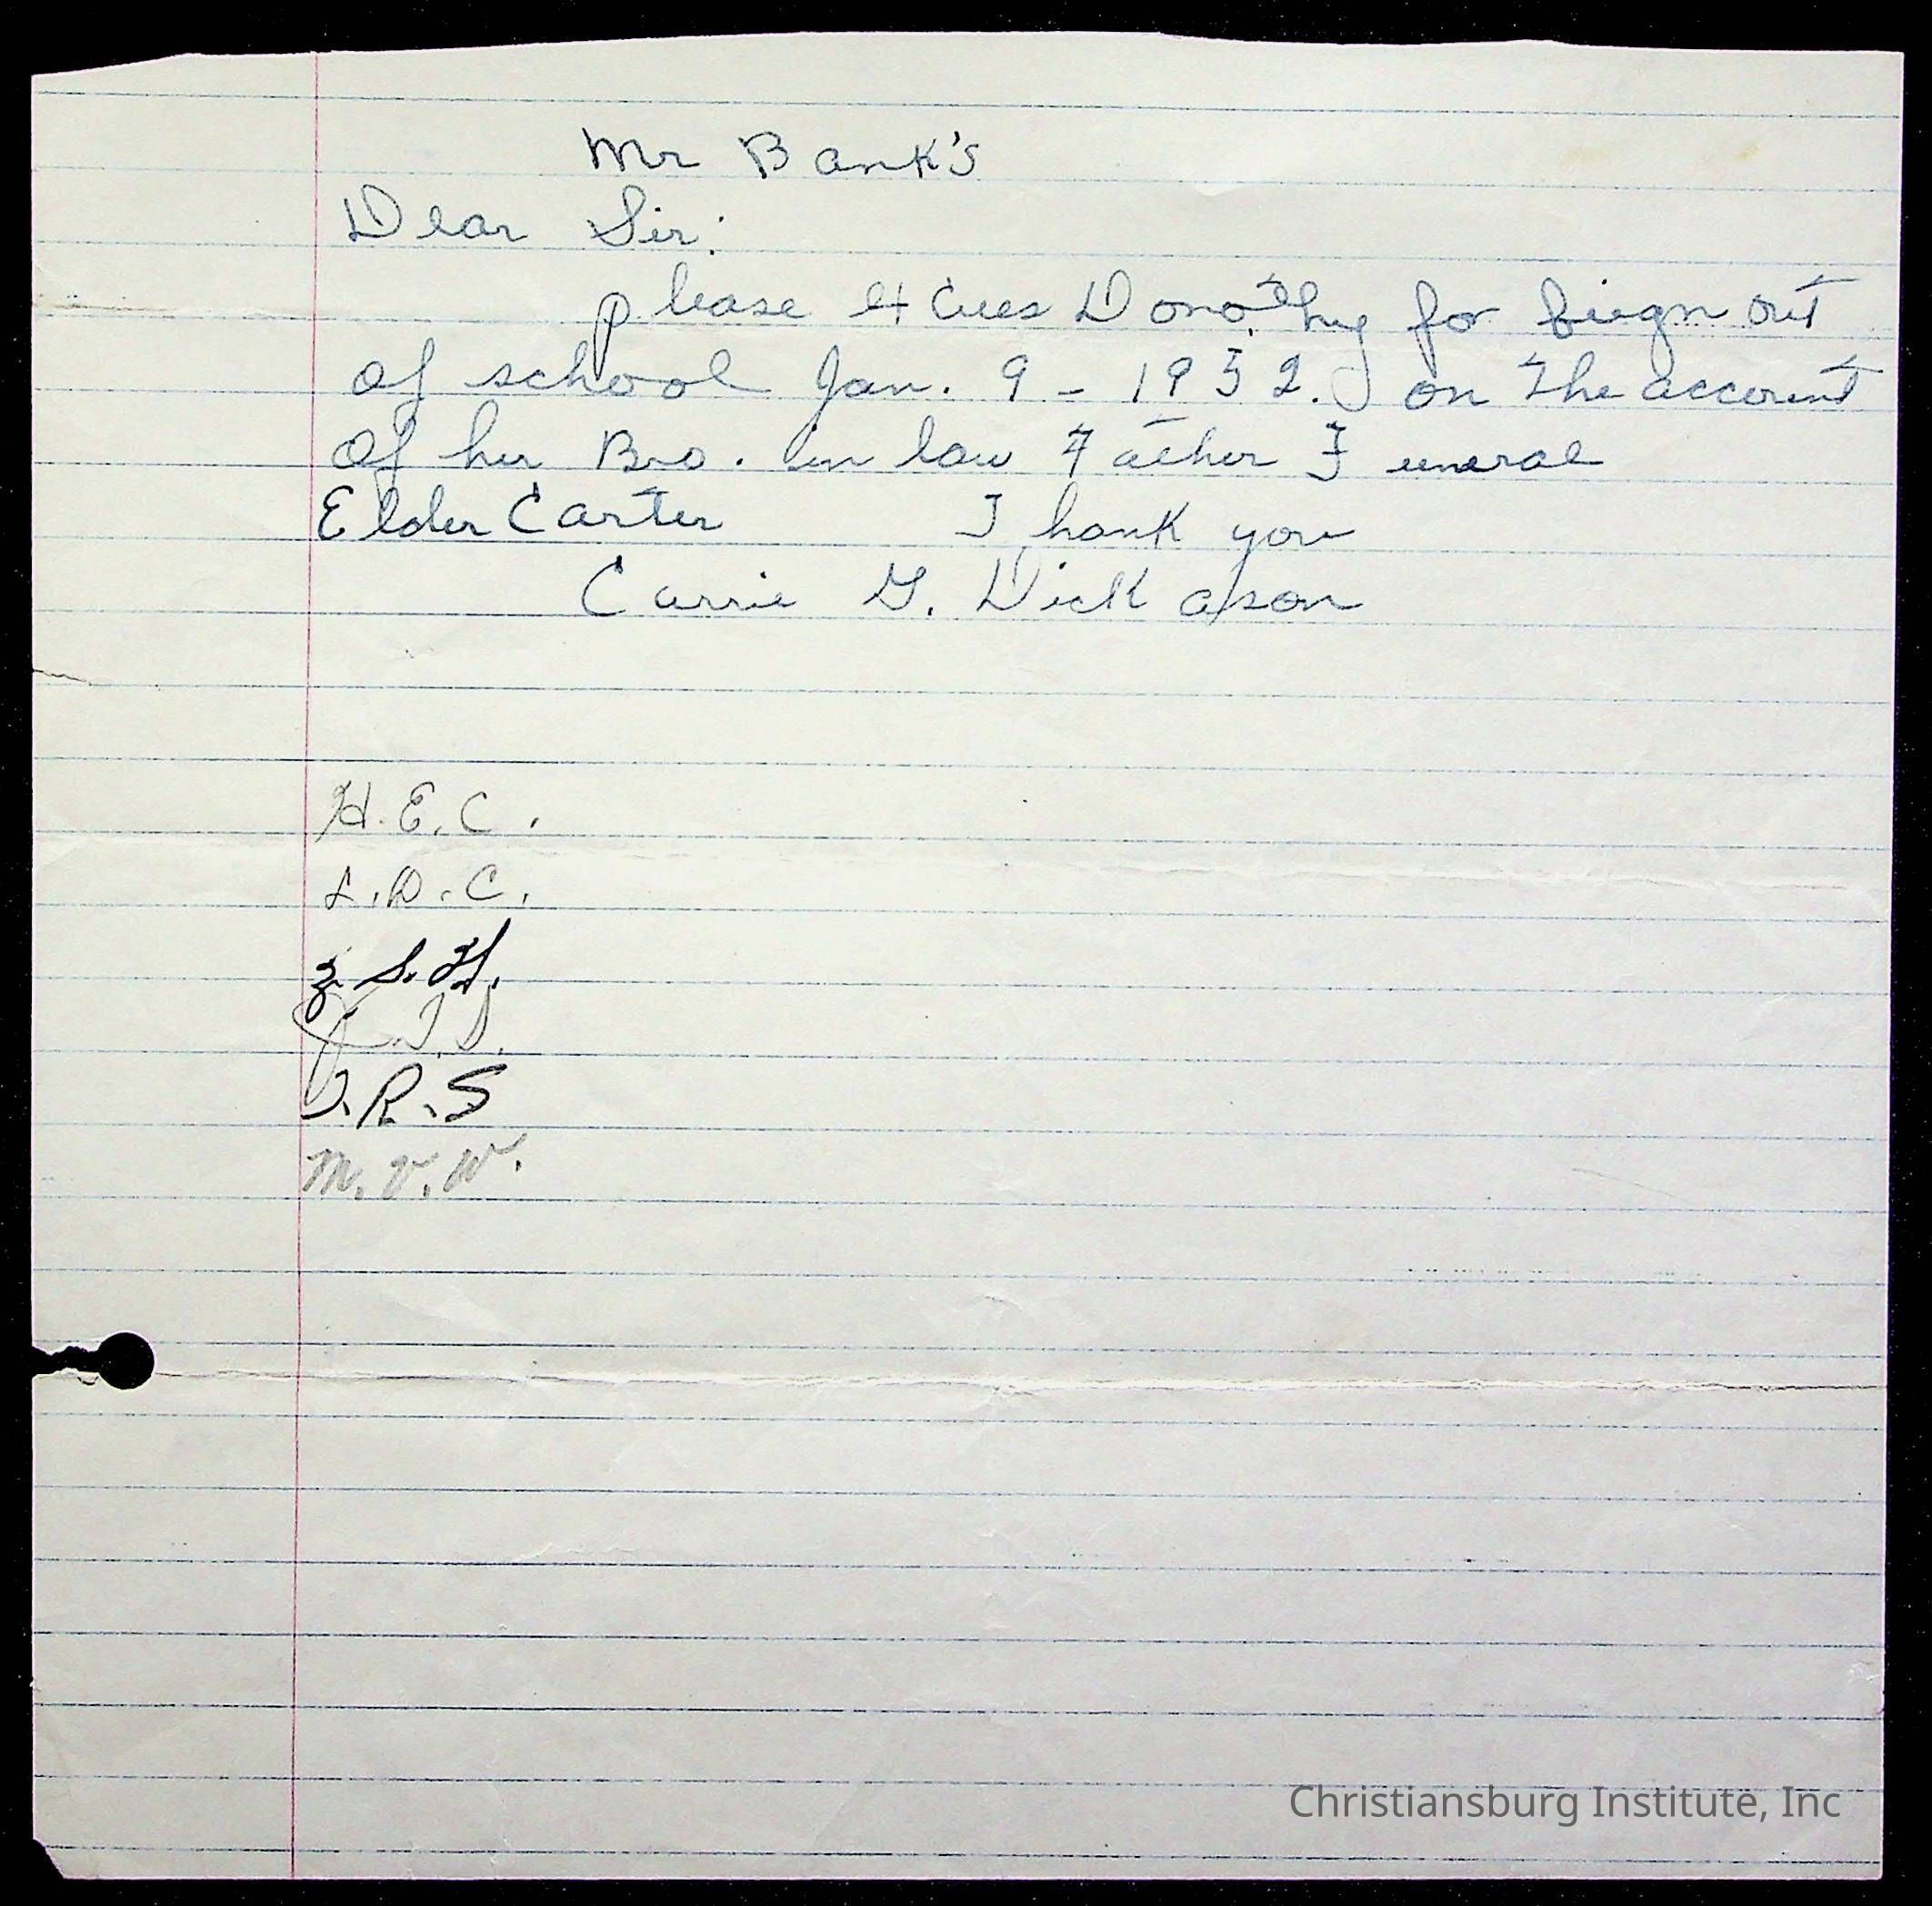 Mr Bank's
Dear Sir:
please excues Dorothy for biegn out
of school Jan. 9 - 1952. on the account
of her Bro. in law Father Funeral
Elder Carter Thank you
Carrie G. Dickason
H. E. C.
L. D. C.
Z. S. H.
J. R. S
M. V. W.
Christiansburg Institute, Inc